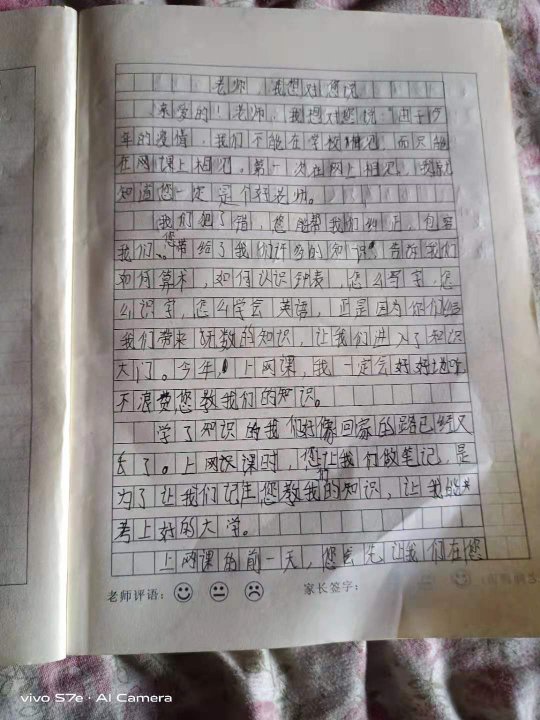 老师，我想对您说
亲爱的！老师，我想对您说"由于今
年的疫情，我们不能在学校相见，而只能
在网课上相见。第一次在网上相见，我就
知道您一定是个好老师。
我们犯了错，您能帮我们纠正，包容
我们、您带给了我们许多的知识，告诉我们
如何算术，如何认识钟表，怎么写字，怎
么识字，怎么学会英语，正是因为你们给
我们带来无数的知识，让我们进入了知识
大门。今年，上网课，我一定会好好地听，
不浪费您教我们的知识。
学了知识的我们好像回家的路已经又
长了。上网课时，您让我们做笔记，是
为了让我们记住您教我们的知识，让我能
考上好的大学。
上网课的前一天，您会先让我们在您
老师评语：
家长签字：
vivo S7e · AI Camera